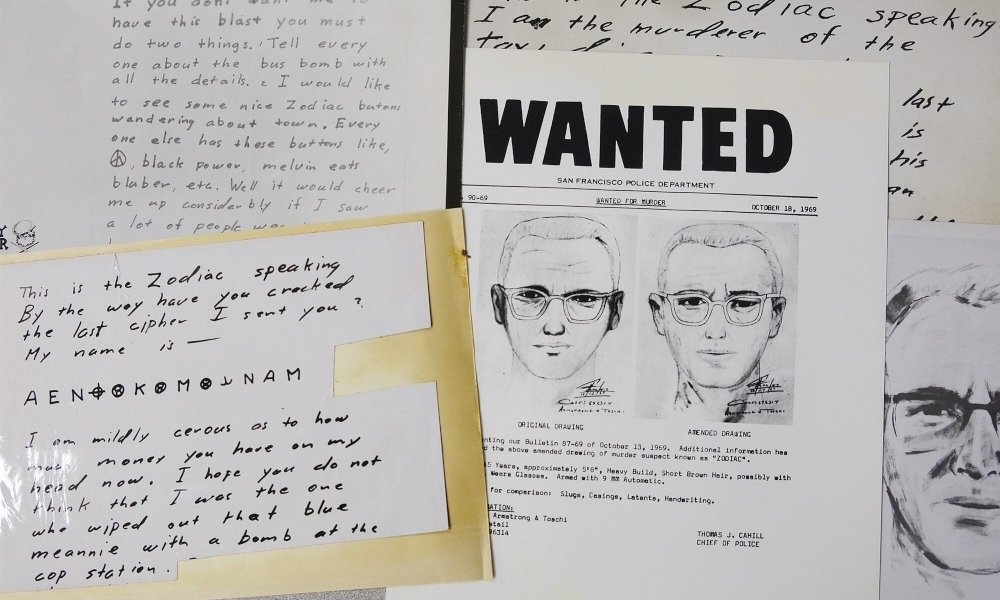 If you dont want me to
have this blast you must
do two things. Tell every
one about the bus bomb with
all the details. I would like
to see some nice Zodiac butons
wandering about town. Every
one else has these buttons like,
☮, black power, melvin eats
bluber, etc. Well it would cheer
me up considerbly if I saw
a lot of people
This is the Zodiac speaking
By the way have you cracked
the last cipher I sent you ?
My name is —
AEN⌖⊗K⊗M⊗⅃NAM
I am mildly cerous as to how
much money you have on my
head now. I hope you do not
think that I was the one
who wiped out that blue
meannie with a bomb at the
cop station.
Zodiac speaking
I am the murderer of the
last
is
his
WANTED
SAN FRANCISCO POLICE DEPARTMENT
90-69 WANTED FOR MURDER OCTOBER 18, 1969
ORIGINAL DRAWING AMENDED DRAWING
nting our Bulletin 87-69 of October 13, 1969. Additional information has
d the above amended drawing of murder suspect known as "ZODIAC".
5 Years, approximately 5'8", Heavy Build, Short Brown Hair, possibly with
Wears Glasses. Armed with 9 MM Automatic.
for comparison: Slugs, Casings, Latents, Handwriting.
ATION:
Armstrong & Toschi
etail
96314
THOMAS J. CAHILL
CHIEF OF POLICE